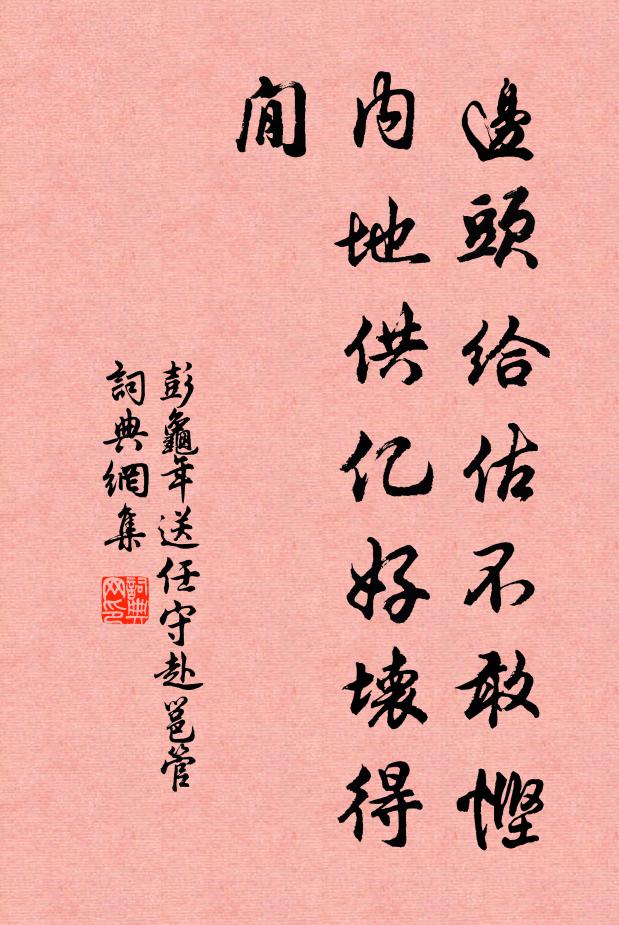 邊頭給估不敢慳
內地供亿好壞得
閒
彭龜年送任守赴邕管
詞典網集
詞典網印